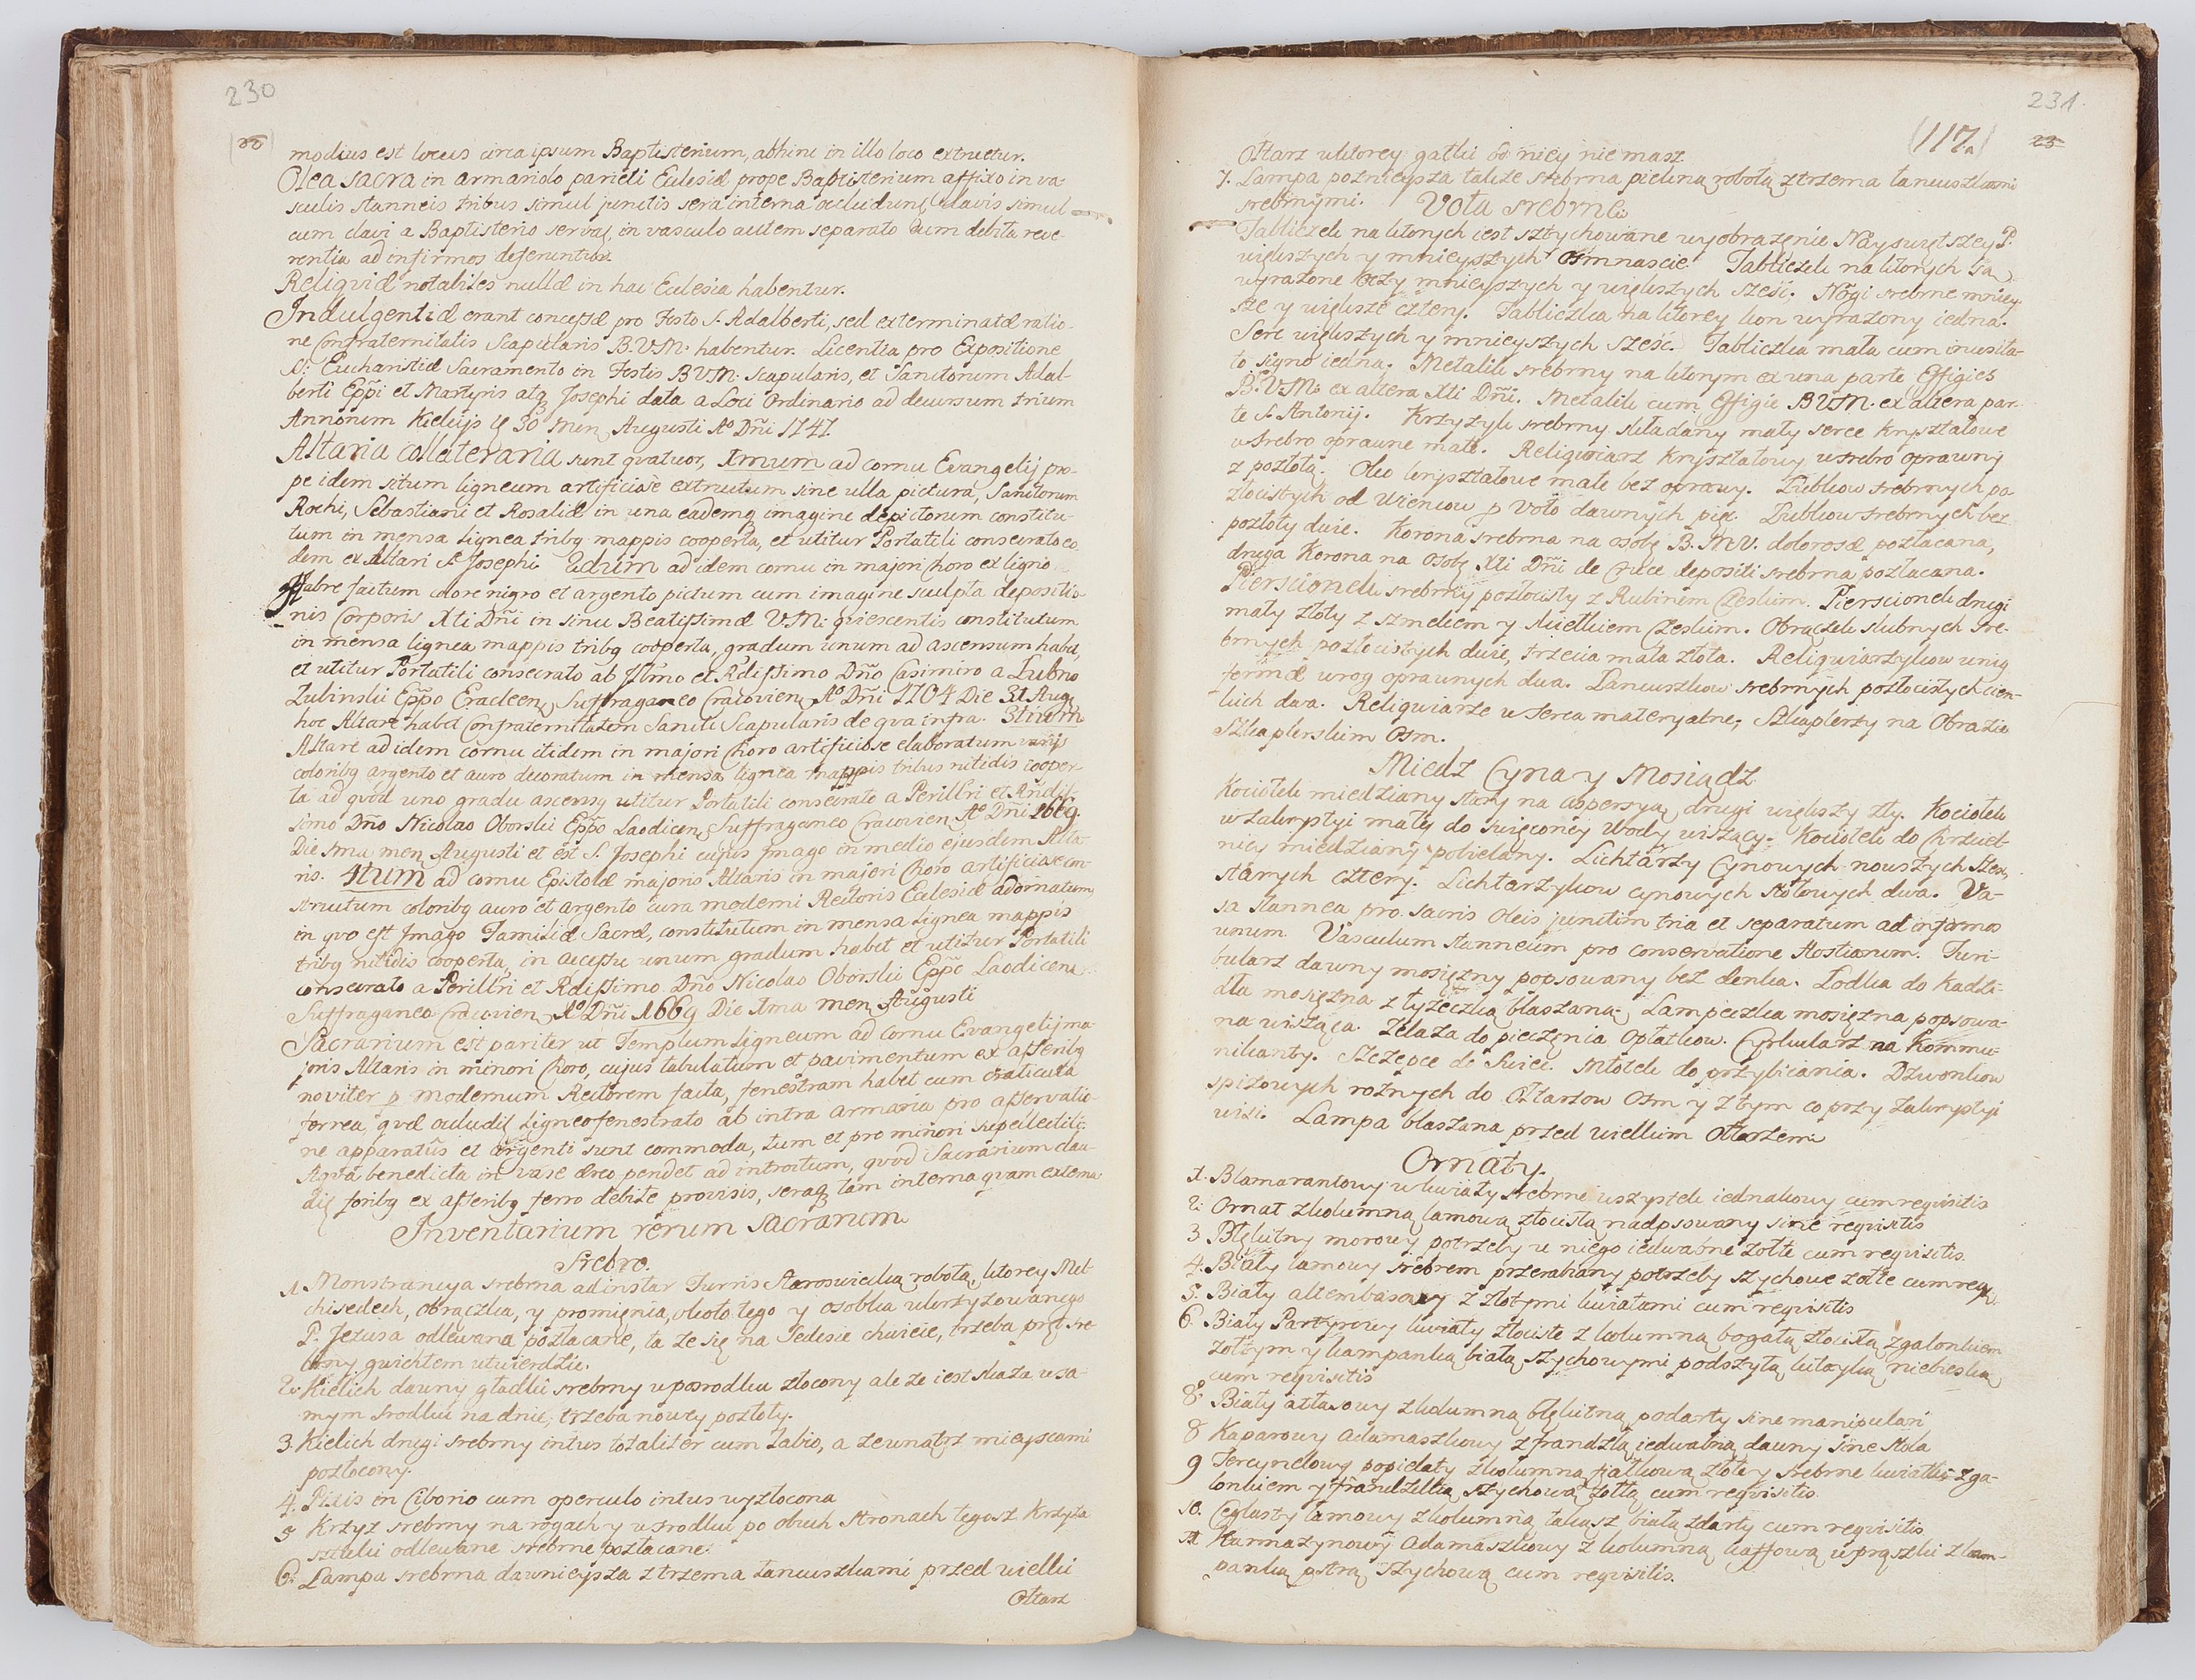 230
modius est locus circa ipsum Baptisterium, abhinc in illo loco extruetur.
Olea sacra in armariolo parieti Ecclesiæ prope Baptisterium affixo in va-
sculis stanneis tribus simul junctis sera interna occludunt clavis simul
cum clavi a Baptisterio servat, in vasculo autem separato cum debita reve-
rentia ad infirmos deferuntur.
Reliquiæ notabiles nullæ in hac Ecclesia habentur.
Indulgentiæ erant concessæ pro Festo S. Adalberti, sed exterminatæ ratio-
ne Confraternitatis Scapularis B.V.M. habentur. Licentia pro Expositione
S: Eucharistiæ Sacramento in Festis BVM. Scapularis, et Sanctorum Adal-
berti Eppi et Martyris atq Josephi data a Loci Ordinario ad decursum trium
Annorum Kielcijs 30 Men Augusti Ao Dñi 1747.
Altaria collateraria sunt qvatuor, 1mum ad cornu Evangelij pro-
pe idem situm ligneum artificiose extructum sine ulla pictura, Sanctorum
Rochi, Sebastiani et Rosaliæ in una eademq imagine depictorum constitu-
tum in mensa lignea tribq mappis cooperta, et utitur Portatili consecrato eo-
dem ex Altari S. Josephi. 2dum ad idem cornu in majori Choro ex ligno
affabre factum colore nigro et argento pictum cum imagine sculpta depositio-
nis Corporis Xti Dñi in sinu Beatissimæ V.M: qviescentis constitutum
in mensa lignea mappis tribq cooperta, gradum unum ad ascensum habet,
et utitur Portatili consecrato ab Illmo et Rdissimo Dño Casimiro a Lubno
Lubinski Eppo Eracleen, Suffraganeo Cracovien, Ao Dñi 1704 Die 31 Aug,
hoc Altare habet Confraternitatem Sancti Scapularis de qva infra. 3tium
Altare ad idem cornu itidem in majori Choro artificiose elaboratum varijs
coloribq argento et auro decoratum in mensa lignea mappis tribus nitidis cooper-
ta ad qvod uno gradu ascensq utitur Portatili consecrato a Perillri et Rndis-
simo Dño Nicolao Oborski Eppo Laodicen, Suffraganeo Cracovien Ao Dñi 1669.
Die 1ma men, Augusti et est S. Josephi cujus Imago in medio ejusdem Alta-
ris. 4tum ad cornu Epistolæ majoris Altaris in majori Choro artificiose con-
structum coloribq auro et argento cura moderni Rectoris Ecclesiæ adornatum,
in qvo est Imago Familiæ Sacræ, constitutum in mensa lignea mappis
tribq nitidis cooperta, in accessu unum gradum habet et utitur Portatili
consecrato a Perillri et Rdissimo Dño Nicolao Oborski Eppo Laodicen,
Suffraganeo Cracovien, Ao Dñi 1669 Die 1ma men, Augusti
Sacrarium est pariter ut Templum ligneum ad cornu Evangelij ma-
joris Altaris in minori Choro, cujus tabulatum et pavimentum ex asseribq
noviter p modernum Rectorem facta, fenestram habet cum craticula
ferrea, qvæ occludit ligneo fenestrato ab intra armaria pro asservatio-
ne apparatûs et argenti sunt commoda, tum et pro minori supellectili:
Aqva benedicta in vase æreo pendet ad introitum, qvod Sacrarium clau-
dit foribq ex asseribq ferro debite provisis, seraq tam interna qvam externa.
Inventarium rerum sacrarum
Srebro.
1. Monstrancya srebrna ad instar Turris Staroswiecką robotą, ktorey Mel-
chisedech, obrączka, y promięnia, około tego y osobka ukrzyżowanego
P. Jezusa odlewana pozłacane, ta że się na Pedesie chwieie, trzeba pręt sre-
brny gwichtem utwierdzic.
2. Kielich dawny gładki srebrny w posrodku złocony ale że iest skaza w sa-
mym srodku na dnie, trzeba nowey pozłoty.
3. Kielich drugi srebrny intus totaliter cum labio, a zewnątrz mieyscami
pozłocony.
4. Pixis in Ciborio cum operculo intus wyzłocona
5 Krzyz srebrny na rogach y w srodku po obuch stronach tegosz Krzyża
sztuki odlewane srebrne pozłacane.
6. Lampa srebrna dawnieysza z trzema łancuszkami przed wielki
Ołtarz
231.
(117a)
Ołtarz u ktorey gałki od niey nie masz.
7. Lampa poznieysza także srebrna piękną robotą z trzema łancuszkami
srebrnymi. Vota srebrne
Tabliczek na ktorych iest sztychowane wyobrazęnie Nayswiętszey P.
większych y mnieyszych osmnascie. Tabliczek na ktorych są
wyrażone oczy mnieyszych y większych sześć. Nogi srebrne mniey-
sze y większe cztery. Tabliczka na ktorey kon wyrażony iedna.
Serc większych y mnieyszych sześć. Tabliczka mała cum inusita-
to signo iedna. Metalik srebrny na ktorym ex una parte Effigies
B.V.M. ex altera Xti Dñi. Metalik cum Effigie BVM. ex altera par-
te S. Antonij. Krzyzyk srebrny składany mały serce kryształowe
w srebro oprawne małe. Reliqwiarz kryształowy w srebro oprawny
z pozłotą. Oko kryształowe małe bez oprawy. Ząbkow srebrnych po-
złocistych od Wiencow p Voto dawnych pięc. Ząbkow srebrnych bez
pozłoty dwie. Korona srebrna na osobę B.M.V. dolorosæ pozłacana,
druga Korona na osobę Xti Dñi de Cruce depositi srebrna pozłacana.
Pierscionek srebrny pozłocisty z Rubinem Czeskim. Pierscionek drugi
mały złoty z szmelcem y Czeskim. Obrączek slubnych sre-
brnych pozłocistych dwie, trzecia mała złota. Reliqwiarzykow
w rog oprawnych dwa. Lancuszkow srebrnych pozłocistych cien-
kich dwa. Reliqwiarze w serca materyalne, Szkaplerzy na Obrazie
Szkaplerskim Osm.
Miedz Cyna y Mosiądz
Kociołek miedziany stary na aspersyą, drugi większy zły. Kociołek
w zakrystyi mały do swięconey Wody wiszący. Kociołek do Krzciel-
nicy miedziany pobielany. Lichtarzy Cynowych nowszych Szesc,
starych cztery. Lichtarzykow cynowych stołowych dwa. Va-
sa stannea pro sacris Oleis junctim tria et separatum ad infirmos
unum. Vasculum stanneum pro conservatione Hostiarum. Turi-
bularz dawny mosiężny popsowany bez denka. Łodka do Kadzi-
dła mosiężna z łyżeczką blaszaną, Lampeczka mosiężna popsowa-
na wisząca. Zelaza do pieczęnia Opłatkow. Cyrkularz na Kommu-
nikanty. Szczepce do Swiec. Młotek do przybicania. Dzwonkow
spiżowych rożnych do Ołtarzow Osm y z tym co przy Zakrystyi
wisi. Lampa blaszana przed wielkim Ołtarzem
Ornaty.
1. Blamarantowy w kwiaty srebrne wszystek iednakowy cum reqvisitis
2. Ornat z kolumną lamową złocistą nadpsowany sine reqvisitis
3 Błękitny morowy potrzeby u niego iedwabne żołte cum reqvisitis
4. Biały lamowy srebrem przerabiany potrzeby szychowe żołte cum reqv.
5. Biały altembasowy z złotymi kwiatami cum reqvisitis
6. Biały Partyrowy kwiaty złociste z kolumną bogatą złocistą z galonkiem
żołtym y kampanką białą szychowymi podszyta kitayką niebieską
cum reqvisitis
8. Biały atłasowy z kolumną błękitną podarty sine manipulari
8 Kaparowy Adamaszkowy z frandzlą iedwabną dawny sine stola
9 Tercynelowy popielaty z kolumną fiałkową złote y srebrne kwiatki z ga-
lonkiem y frandzelką szychową żołtą cum reqvisitis.
10. Ceglasty lamowy z kolumną takąsz białą zdarty cum reqvisitis
11 Karmazynowy Adamaszkowy z kolumną kaffową w prąszki z kam-
panką pstrą szychową cum reqvisitis.